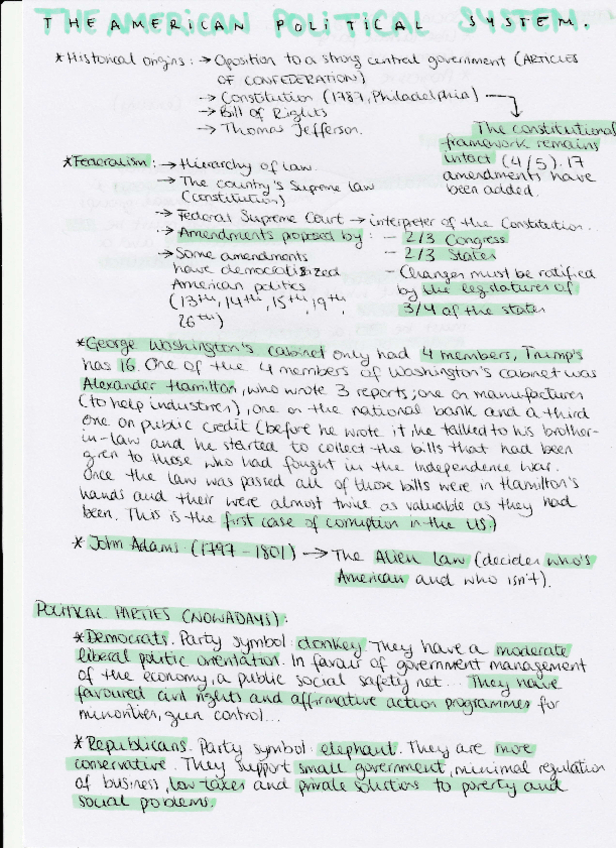 THE AMERICAN POLITICAL SYSTEM.
*Historical origins: → Oposition to a strong central government (ARTICLES
OF CONFEDERATION)
→ Constitution (1787, Philadelphia) →
→ Bill of Rights
→ Thomas Jefferson.
The constitutional
framework remains
intact (4/5). 17
amendments have
been added.
*Federalism: → Hierarchy of law.
→ The country's Supreme law
(constitution)
→ Federal Supreme Court → interpreter of the Constitution...
→ Amendments proposed by: - 2/3 Congress
- 2/3 States
→ Some amendments
have democratized
American politics
(13th, 14th, 15th, 19th,
26th)
- Changes must be ratified
by the legislatures of
3/4 of the states
*George Washington's cabinet only had 4 members, Trump's
has 16. One of the 4 members of Washington's cabinet was
Alexander Hamilton, who wrote 3 reports; one on manufactures
(to help industries), one on the national bank and a third
one on public credit (before he wrote it, he talked to his brother-
in-law and he started to collect the bills that had been
given to those who had fought in the Independence war.
Once the law was passed all of those bills were in Hamilton's
hands and their were almost twice as valuable as they had
been. This is the first case of corruption in the US.)
* John Adams (1797-1801) → The Alien Law (decides who's
American and who isn't).
POLITICAL PARTIES (NOWADAYS).
*Democrats. Party symbol: donkey. They have a moderate
liberal politic orientation. In favour of government management
of the economy, a public social safety net... They have
favoured civil rights and affirmative action programmes for
minorities, gun control...
*Republicans. Party symbol: elephant. They are more
conservative. They support small government, minimal regulation
of business, low taxes and private solutions to poverty and
social poblems.